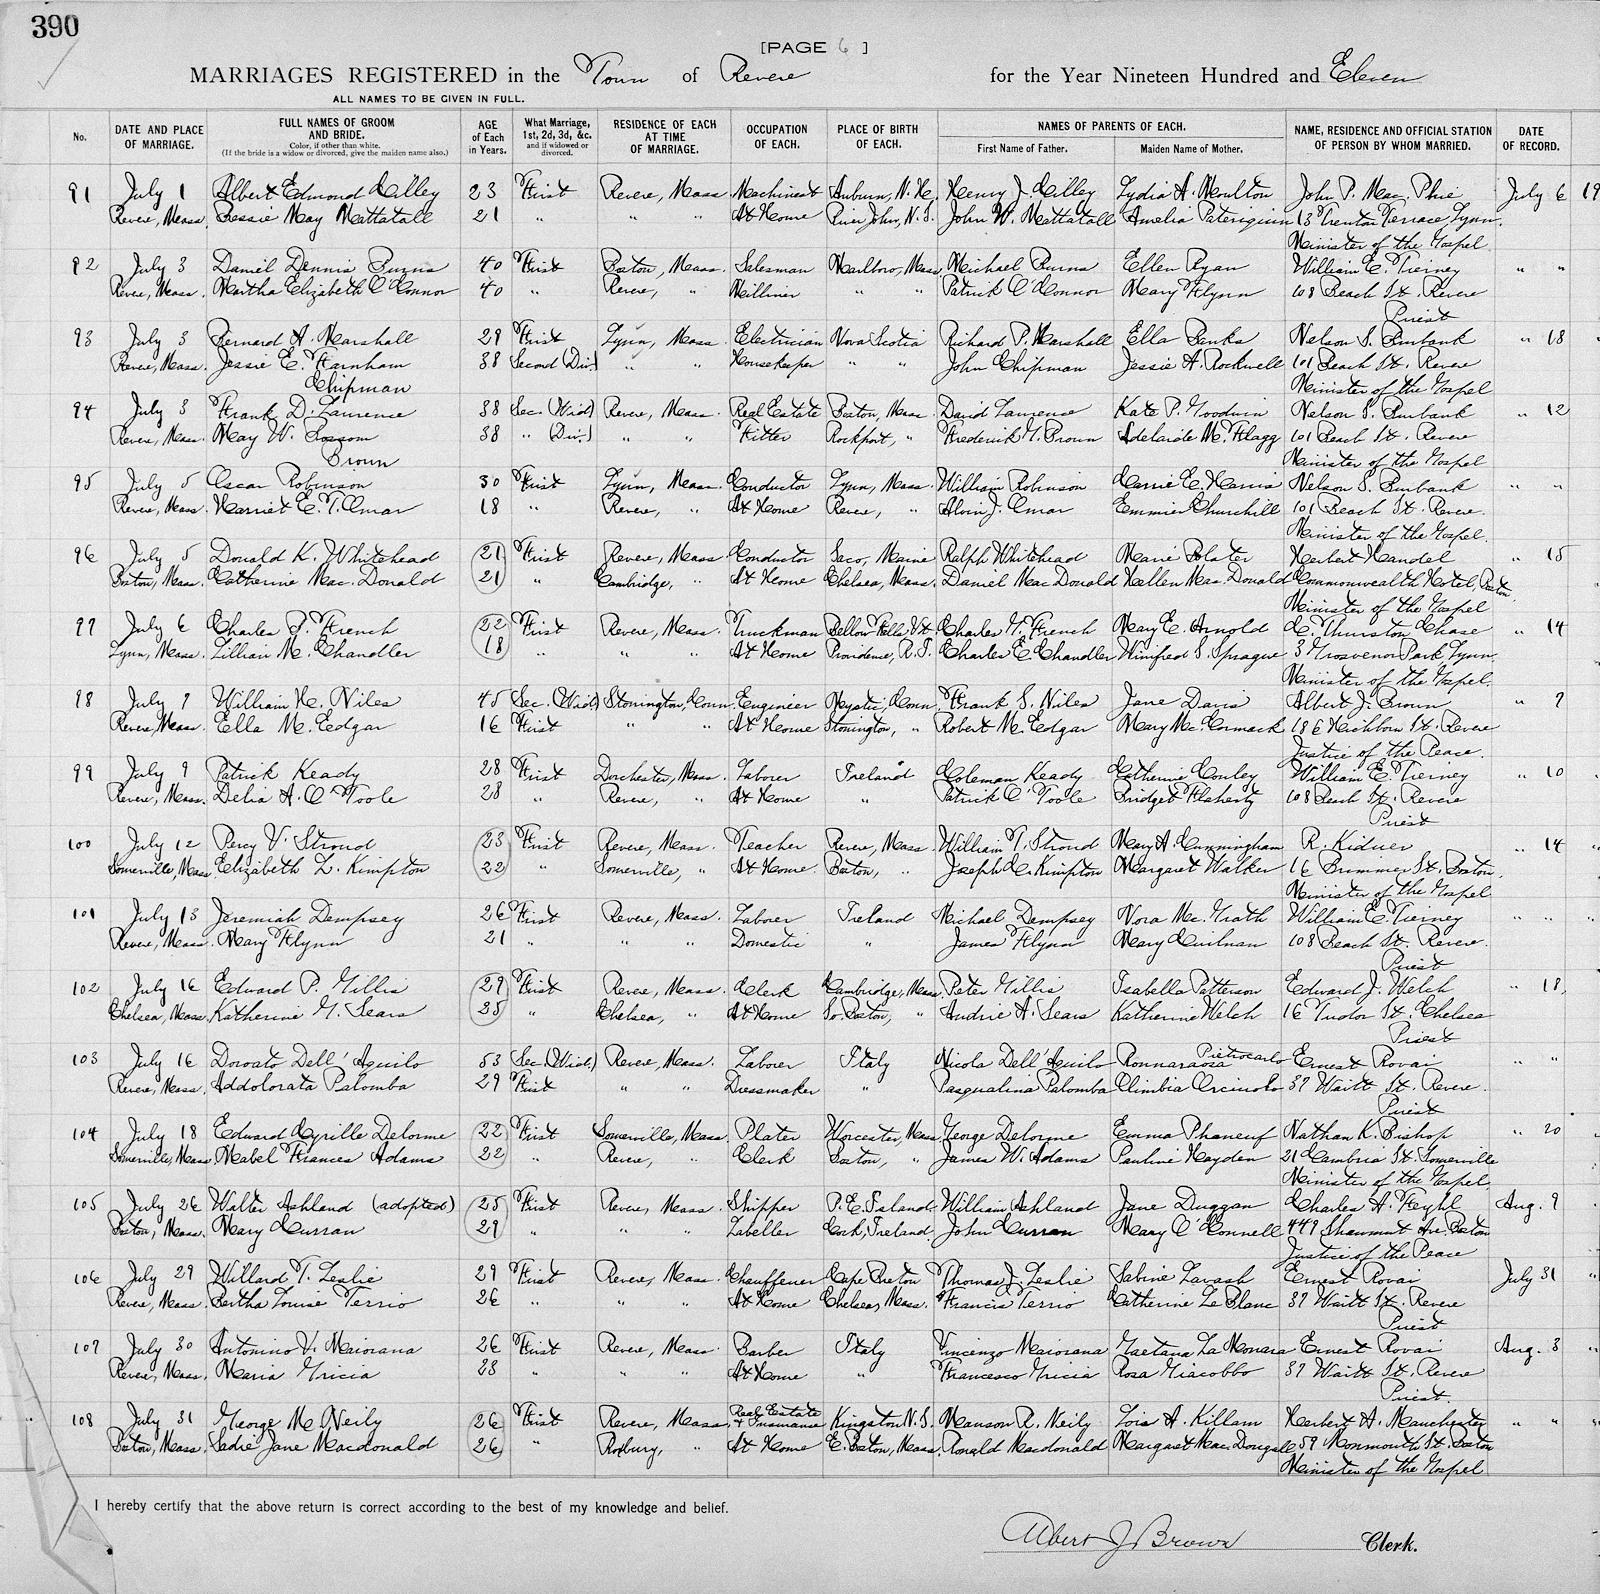 390
[PAGE 6 ]
MARRIAGES REGISTERED in the Town of Revere for the Year Nineteen Hundred and Eleven
ALL NAMES TO BE GIVEN IN FULL.
No. DATE AND PLACE OF MARRIAGE. FULL NAMES OF GROOM AND BRIDE. Color, if other than white. (If the bride is a widow or divorced, give the maiden name also.) AGE of Each in Years. What Marriage, 1st, 2d, 3d, &c. and if widowed or divorced. RESIDENCE OF EACH AT TIME OF MARRIAGE. OCCUPATION OF EACH. PLACE OF BIRTH OF EACH. NAMES OF PARENTS OF EACH. First Name of Father. Maiden Name of Mother. NAME, RESIDENCE AND OFFICIAL STATION OF PERSON BY WHOM MARRIED. DATE OF RECORD.
91 July 1 Albert Edmond Cilley 23 First Revere, Mass. Machinist Auburn, N.H. Henry J. Cilley Lydia A. Moulton John P. Mac Phie July 6 19
Revere, Mass. Bessie May Mattatall 21 " " " At Home River John, N.S. John W. Mattatall Amelia 13 Trenton Terrace Lynn.
Minister of the Gospel
92 July 3 Daniel Dennis Burns 40 First Boston, Mass. Salesman Marlboro, Mass. Michael Burns Ellen Ryan William E. Tierney " "
Revere, Mass. Martha Elizabeth O'Connor 40 " Revere, " Milliner " " Patrick O'Connor Mary Flynn 108 Beach St. Revere
Priest
93 July 3 Bernard A. Marshall 29 First Lynn, Mass. Electrician Nova Scotia Richard P. Marshall Ella Banks Nelson S. Burbank " 18
Revere, Mass. Jessie E. Farnham 38 Second (Div.) " " Housekeeper " " John Chipman Jessie A. Rockwell 101 Beach St. Revere
Chipman Minister of the Gospel
94 July 3 Frank D. Laurence 38 Sec. (Wid.) Revere, Mass. Real Estate Boston, Mass. David Laurence Kate P. Goodwin Nelson S. Burbank " 12
Revere, Mass. May W. Ransom 38 " (Div.) " " Fitter Rockport, " Frederick G. Brown Adelaide M. Flagg 101 Beach St. Revere
Brown Minister of the Gospel
95 July 5 Oscar Robinson 30 First Lynn, Mass. Conductor Lynn, Mass. William Robinson Carrie E. Harris Nelson S. Burbank " "
Revere, Mass. Harriet E. T. Omar 18 " Revere, " At Home Revere, " Alvin J. Omar Emmier Churchill 101 Beach St. Revere.
Minister of the Gospel.
96 July 5 Donald K. Whitehead 21 First Revere, Mass. Conductor Saco, Maine Ralph Whitehead Marie Herbert Handel " 15
Boston, Mass. Catherine Mac. Donald 21 " Cambridge, " At Home Chelsea, Mass. Daniel Mac Donald Hellen Mac. Donald Commonwealth Hotel, Boston
Minister of the Gospel
97 July 6 Charles P. French 22 First Revere, Mass. Truckman Bellow Falls Vt. Charles W. French Mary E. Arnold C. Thurston Chase " 14
Lynn, Mass. Lillian M. Chandler 18 " " " At Home Providence, R.I. Charles E. Chandler Winifred S. Sprague 3 Grosvenor Park Lynn.
Minister of the Gospel.
98 July 7 William H. Niles 45 Sec. (Wid.) Stonington, Conn. Engineer Mystic, Conn. Frank S. Niles Jane Davis Albert J. Brown " 7
Revere, Mass. Ella M. Edgar 16 First " " At Home Stonington, " Robert M. Edgar Mary Mc. Cormack 186 Hichborn St. Revere
Justice of the Peace.
99 July 9 Patrick Keady 28 First Dorchester, Mass. Laborer Ireland Coleman Keady Catherine Conley William E. Tierney " 10
Revere, Mass. Delia A. O'Toole 28 " Revere, " At Home " Patrick O'Toole Bridget Flaherty 108 Beach St. Revere
Priest
100 July 12 Percy V. Stroud 23 First Revere, Mass. Teacher Revere, Mass. William T. Stroud Mary A. Cunningham R. Kidner " 14
Somerville, Mass. Elizabeth L. Kimpton 22 " Somerville, " At Home Boston, " Joseph C. Kimpton Margaret Walker 16 Brimmer St. Boston.
Minister of the Gospel
101 July 13 Jeremiah Dempsey 26 First Revere, Mass. Laborer Ireland Michael Dempsey Nora Mc. Grath William E. Tierney " "
Revere, Mass. Mary Flynn 21 " " " Domestic " James Flynn Mary 108 Beach St. Revere.
Priest
102 July 16 Edward P. Gillis 29 First Revere, Mass. Clerk Cambridge, Mass. Peter Gillis Isabella Patterson Edward J. Welch " 18,
Chelsea, Mass. Katherine G. Sears 35 " Chelsea, " At Home So. Boston, " Andrie A. Sears Katherine Welch 16 Tudor St. Chelsea
Priest
103 July 16 Donato Dell' Aquilo 53 Sec. (Wid.) Revere, Mass. Laborer Italy Nicola Dell' Aquilo Pietrocarlo Ernest Rovai " "
Revere, Mass. Addolorata Palomba 29 First " " Dressmaker " Pasqualina Palomba Olimbia 37 Waitt St. Revere.
Priest
104 July 18 Edward Cyrille Delorme 22 First Somerville, Mass. Plater Worcester, Mass. George Delorme Emma Phaneuf Nathan K. Bishop " 20
Somerville, Mass. Mabel Frances Adams 22 " Revere, " Clerk Boston, " James W. Adams Pauline Hayden 21 Cambria St. Somerville
Minister of the Gospel.
105 July 26 Walter Ashland (adopted) 25 First Revere, Mass. Shipper P. E. Island William Ashland Jane Duggan Charles A. Feyhl Aug. 9
Boston, Mass. Mary Curran 29 " " " Labeller Cork, Ireland. John Curran Mary O'Connell 449 Shawmut Ave. Boston
Justice of the Peace
106 July 29 Willard T. Leslie 29 First Revere, Mass. Chauffeur Cape Breton Thomas J. Leslie Sabine Lavash Ernest Rovai July 31 "
Revere, Mass. Bertha Louise Terrio 26 " " " At Home Chelsea, Mass. Francis Terrio Catherine Le Blanc 37 Waitt St. Revere
Priest
107 July 30 Antonino V. Maiorana 26 First Revere, Mass. Barber Italy Vincenzo Maiorana Gaetana La Monaca Ernest Rovai Aug. 3 "
Revere, Mass. Maria Gricia 28 " " " At Home " Francesco Gricia Rosa Giacobbo 37 Waitt St. Revere
Priest.
108 July 31 George M. Neily 26 First Revere, Mass. Real Estate & Insurance Kingston N.S. Manson R. Neily Lois A. Killam Herbert A. Manchester " "
Boston, Mass. Sadie Jane Macdonald 26 " Roxbury, " At Home E. Boston, Mass. Ronald Macdonald Margaret Mac. Dougall 59 Monmouth St. Boston
Minister of the Gospel
I hereby certify that the above return is correct according to the best of my knowledge and belief.
Albert J Brown Clerk.